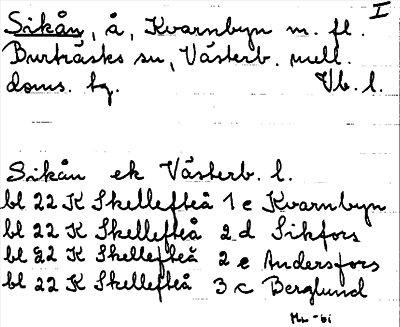 I
Sikån, å, Kvarnbyn m. fl.
Burträsks sn, Västerb. mell.
doms. tg. Vb. l.
Sikån ek Västerb. l.
bl 22 K Skellefteå 1 e Kvarnbyn
bl 22 K Skellefteå 2 d Sikfors
bl 22 K Skellefteå 2 e Andersfors
bl 22 K Skellefteå 3 c Berglund